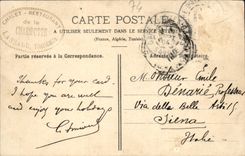 CHALET - RESTAURANT
de la
CARTE POSTALE
A UTILISER SEULEMENT DANS LE SERVICE INTÉRIEUR
(France, Algérie, Tunisie)
Partie réservée à la Correspondance.
Thanks for your card
I hope you are well
and enjoy your holidays
Monsieur Emile
Dénarié, Professeur
Via delle Belle Arti 15
Siena
Italie